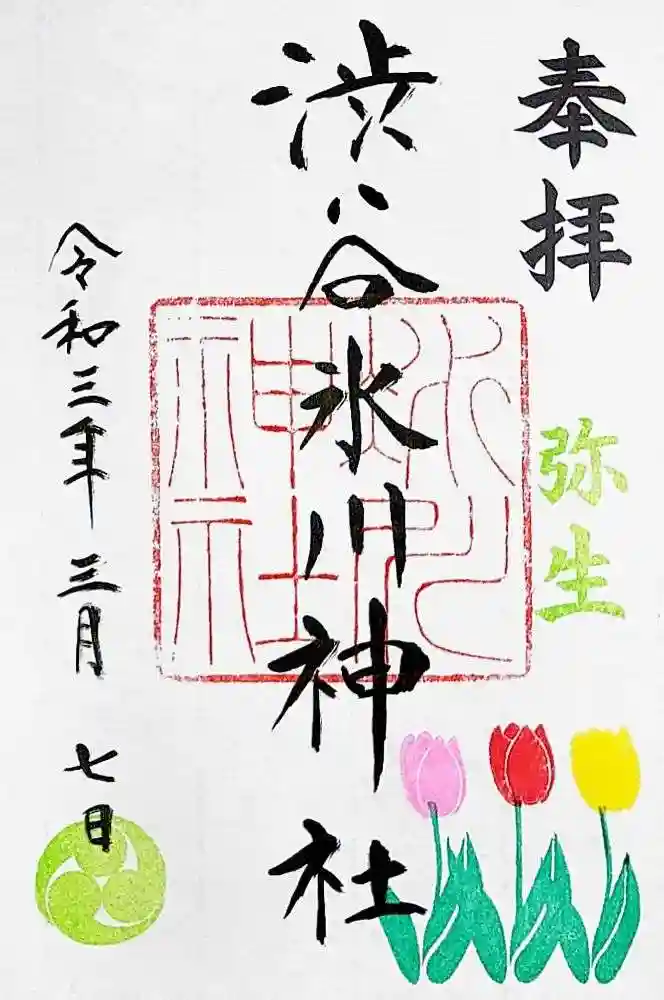 奉拝
弥生
渋谷氷川神社
令和三年 三月 七日